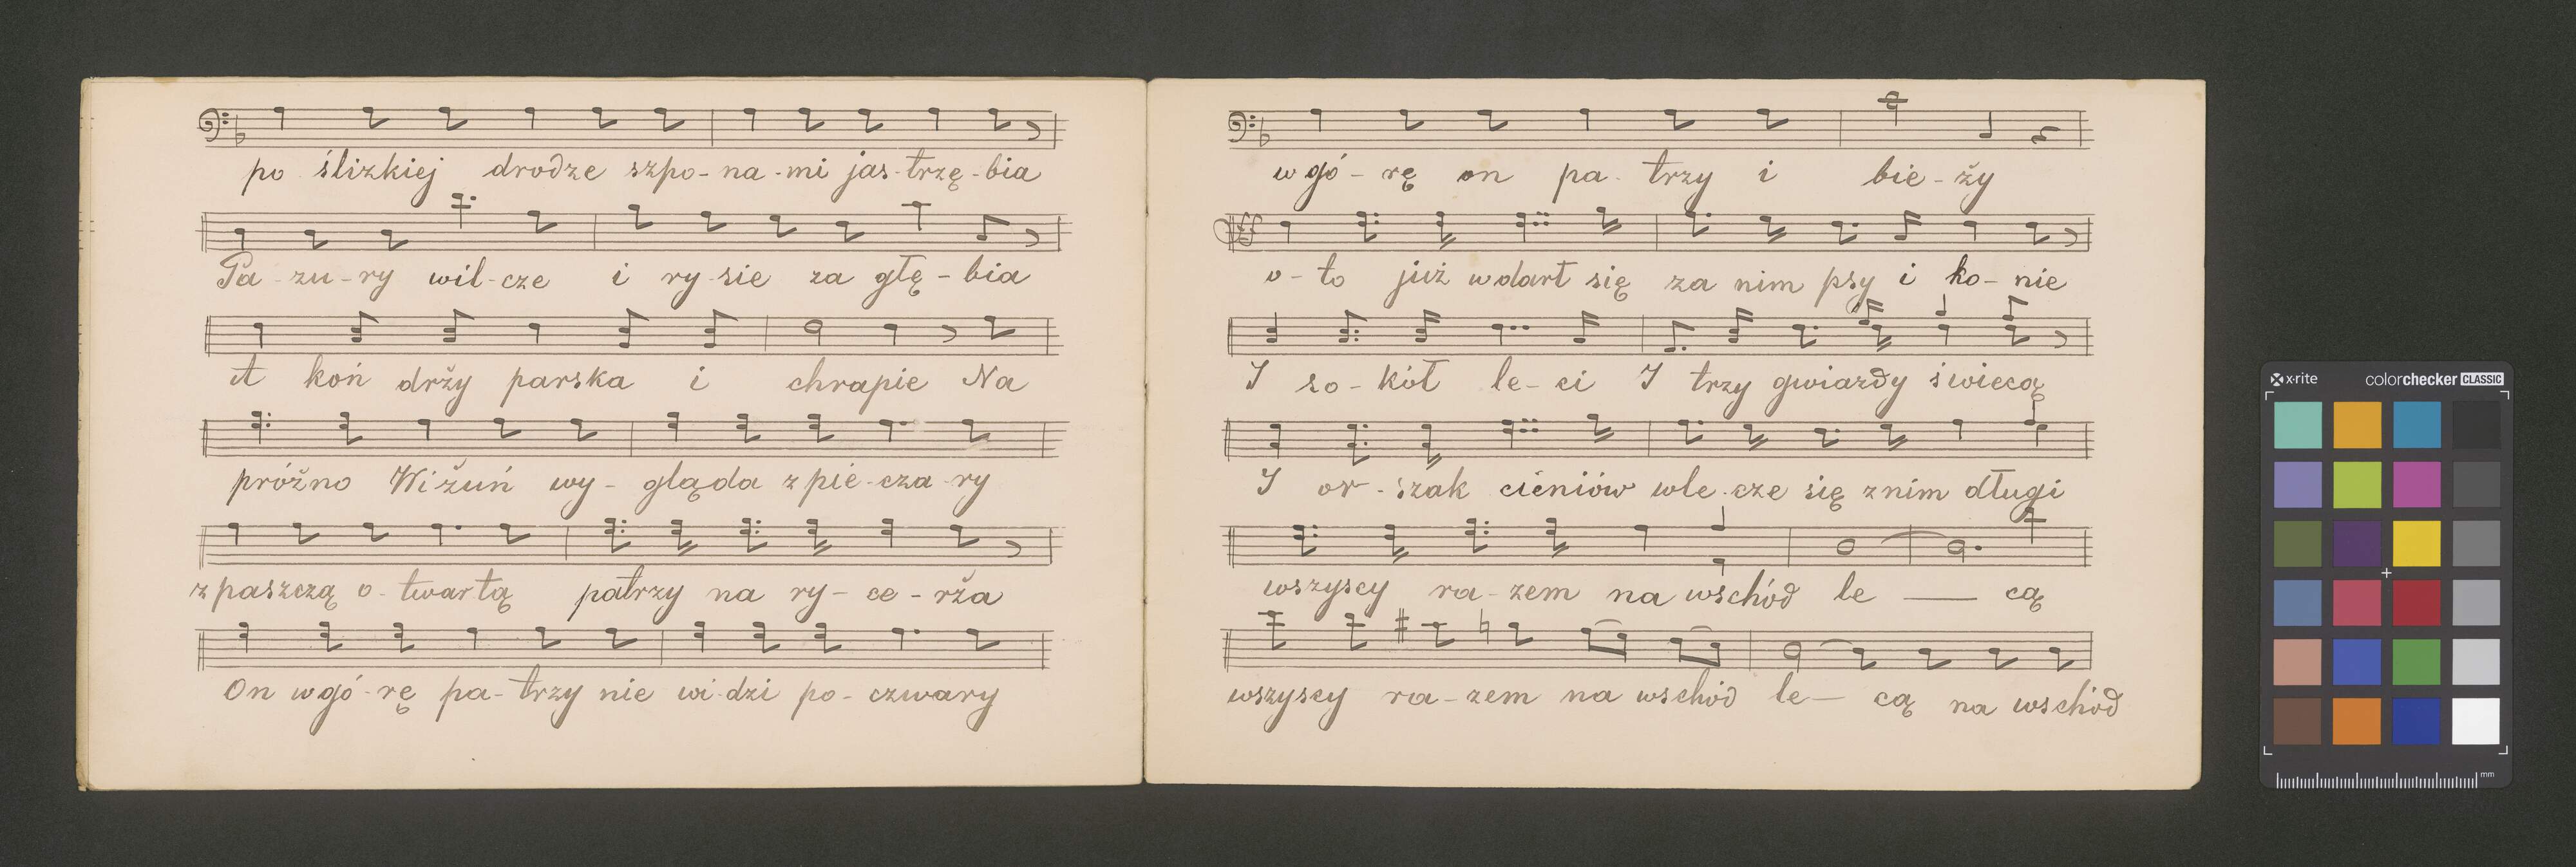 po ślizkiej drodze szpo-na-mi jas-trzę-bia
Pa-zu-ry wil-cze i ry-sie za głę-bia
A koń drży parska i chrapie Na
próżno Wi-żuń wy-gląda z pie-cza-ry
z paszczą o-twartą patrzy na ry-ce-rża
On w gó-rę pa-trzy nie wi-dzi po-czwary
w gó-rę on pa-trzy i bie-ży
ff
o-to już wdarł się za nim psy i ko-nie
I so-kół le-ci I trzy gwiazdy świecą
I or-szak cieniów wle-cze się z nim długi
wszyscy ra-zem na wschód le — cą
wszyscy ra-zem na wschód le- cą na wschód
x·rite colorchecker CLASSIC
mm